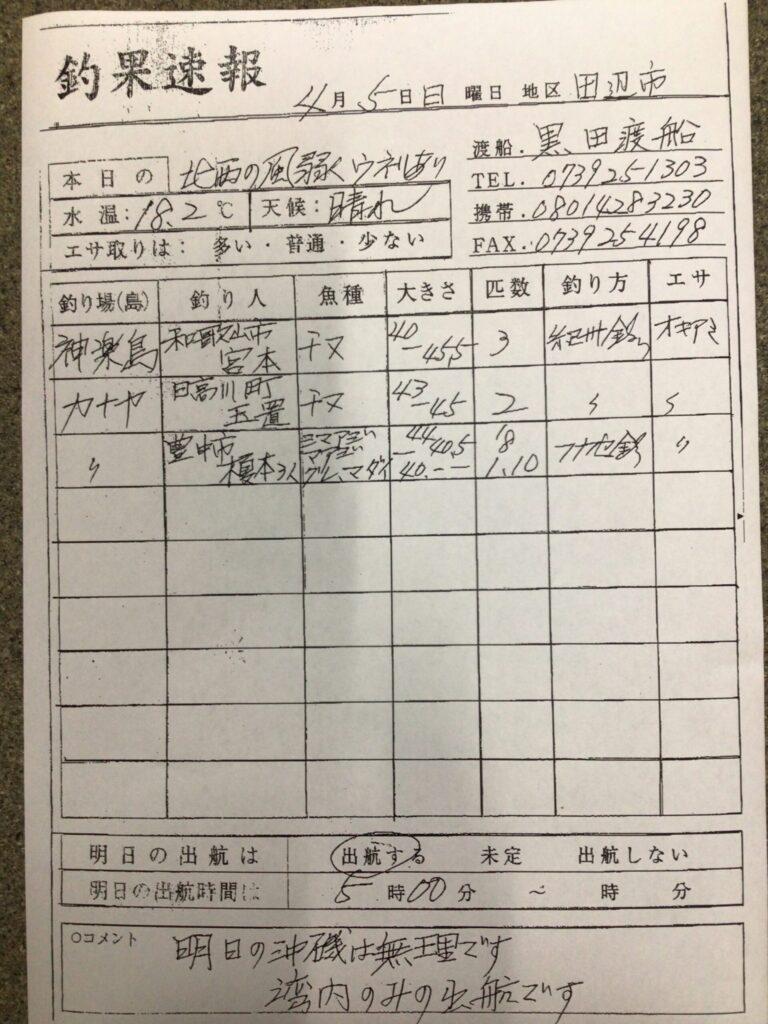 釣果速報
4月5日日曜日 地区 田辺市
渡船. 黒田渡船
TEL. 0739251303
携帯. 08014283230
FAX. 0739254198
本日の 北西の風弱くウネリあり
水温:18.2℃ 天候:晴れ
エサ取りは: 多い・普通・少ない
釣り場(島) 釣り人 魚種 大きさ 匹数 釣り方 エサ
神楽島 和歌山市 宮本 チヌ 40-45.5 3 紀州釣り オキアミ
カナヤ 日高川町 玉置 チヌ 43-45 2 〃 〃
〃 豊中市 榎本3人 シマアジ マアジ グレ、マダイ 44 40.5 40.-- 18 1.10 フカセ釣 〃
明日の出航は 出航する 未定 出航しない
明日の出航時間は 5時00分 ~ 時 分
○コメント
明日の沖磯は無理です
湾内のみの出航です